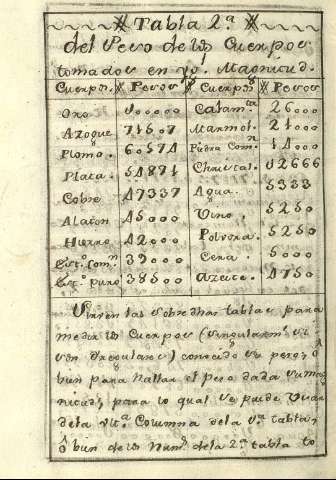 Tabla 2ª
del Peso de los Cuerpos
tomados en ygl. Magnitud.
Cuerps. Pesos Cuerps. Pesos
Oro 100000 Calamta 26000
Azogue 71507 Marmol 21000
Plomo. 60574 Piedra Comn. 14000
Plata. 54871 Christal. 12666
Cobre 47337 Agua. 5333
Alaton 45000 Vino. 5250
Hierro 42000 Polvora. 5250
Esto. Comn. 39000 Cera. 5000
Esto. puro 38500 Azeite. 4750
Sirven las sobredhas tablas para
medir los Cuerpos (singularmte. si
son Irregulares) conocido su peso; ô
bien para hallar el peso dada su mag
nitud; para lo qual se puede Usar
dela ulta. Columna dela 1ª. tabla,
ô bien de los Nums. dela 2ª. tabla to